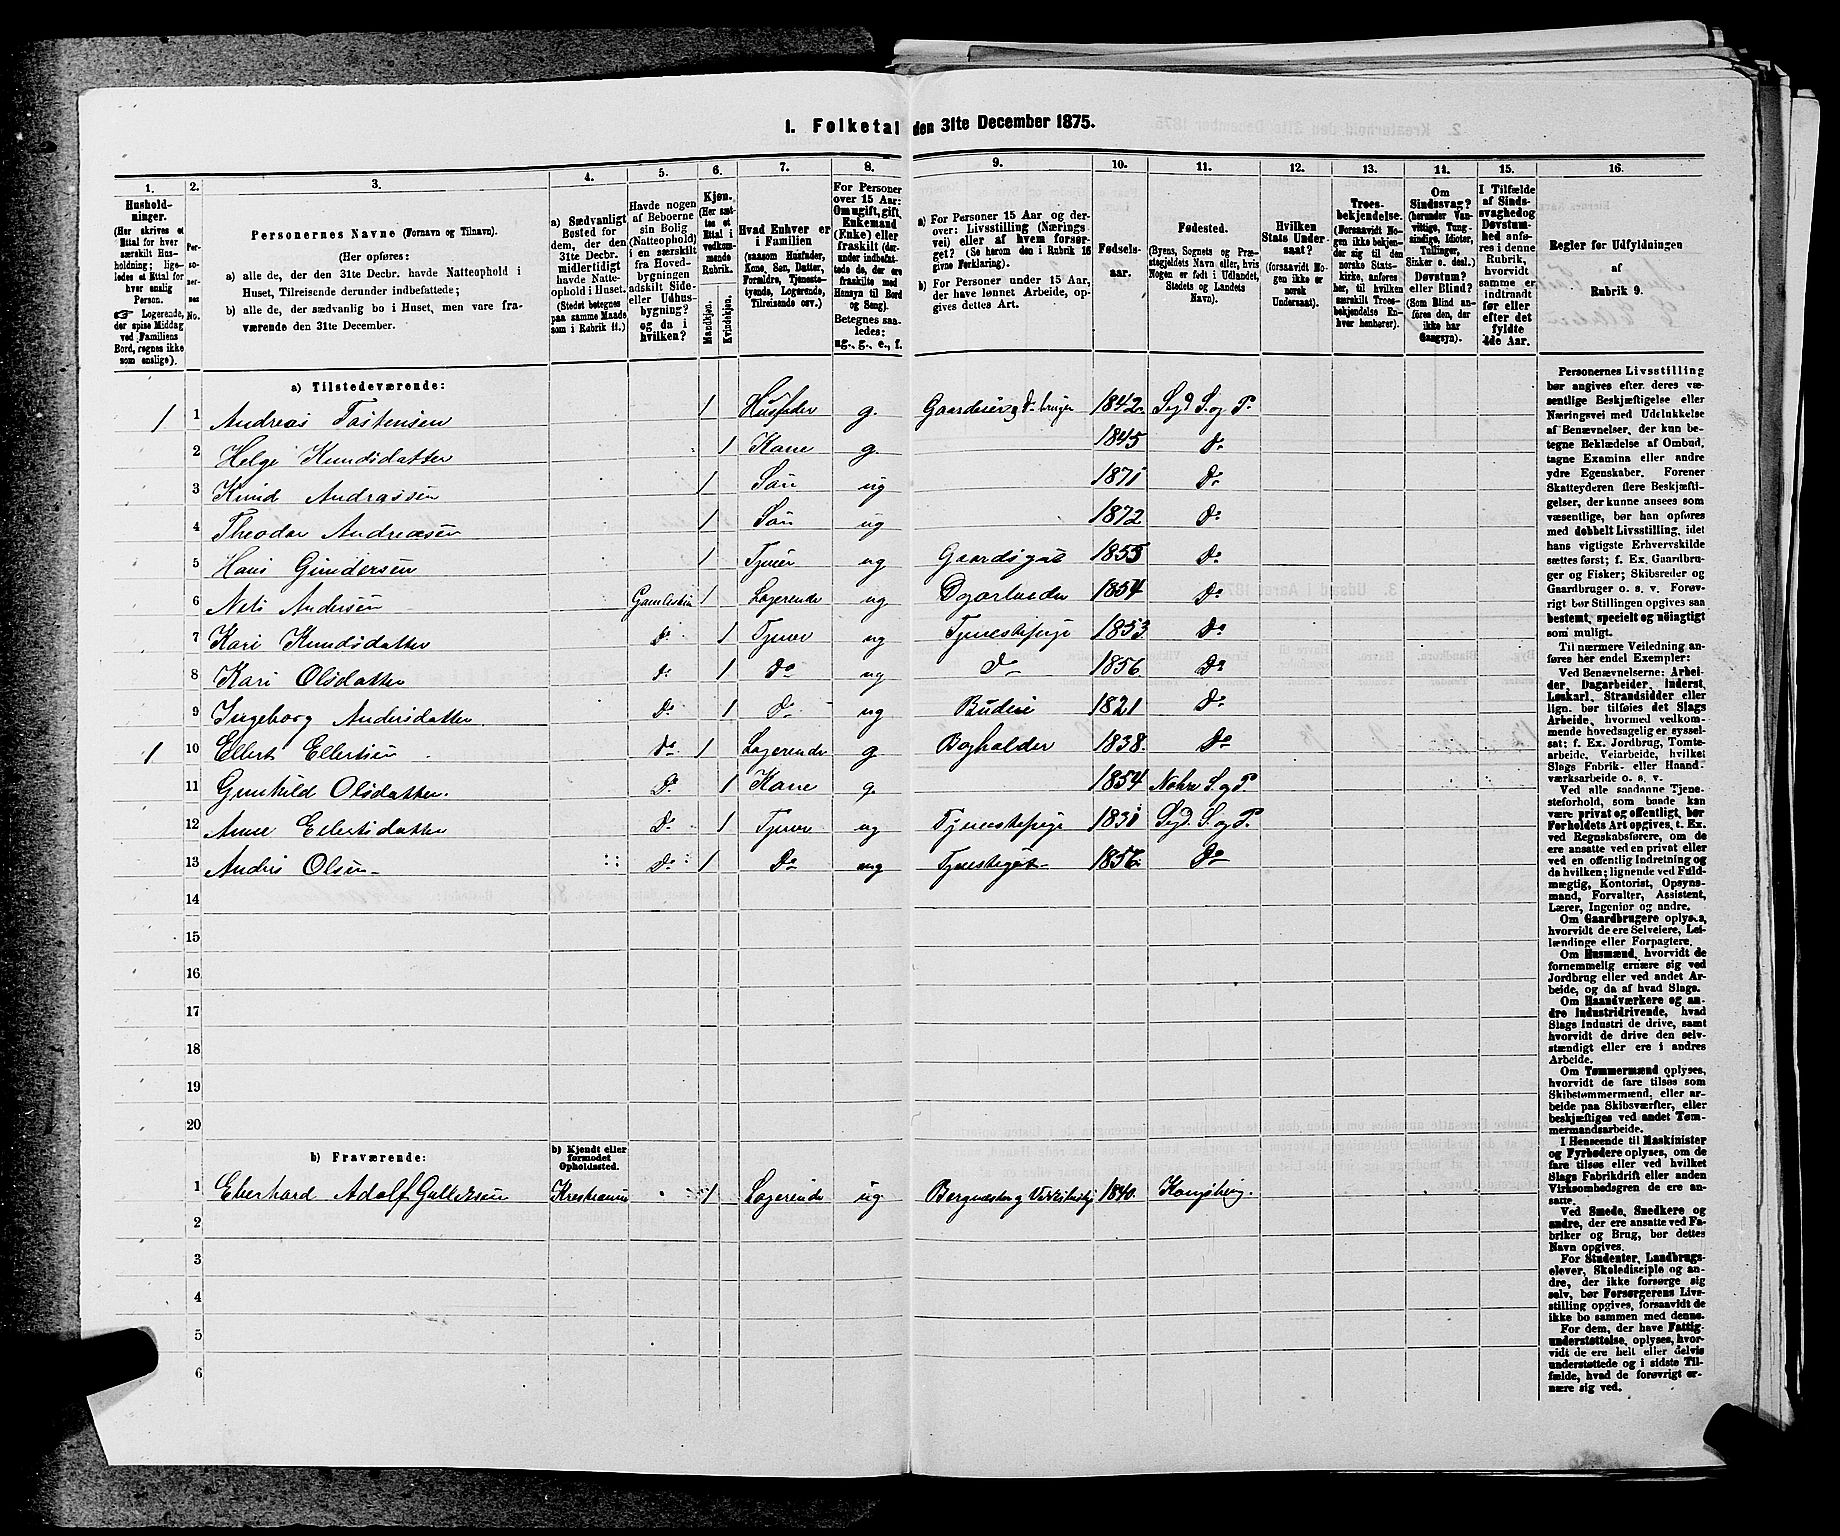 I. Folketal den 31te December 1875.
1. 2. 3. 4. 5. 6. 7. 8. 9. 10. 11. 12. 13. 14. 15. 16.
Hushold-
ninger.
(Her skrives et
Ettal for hver
særskilt Hus-
holdning; lige-
ledes et Ettal for
hver enslig
Person.
Logerende,
der spise Middag
ved Familiens
Bord, regnes ikke
som enslige).
Per-
so-
ner-
nes
No.
Personernes Navne (Fornavn og Tilnavn).
(Her opføres:
a) alle de, der den 31te Decbr. havde Natteophold i
Huset, Tilreisende derunder indbefattede;
b) alle de, der sædvanlig bo i Huset, men vare fra-
værende den 31te December.
a) Sædvanligt
Bosted for
dem, der den
31te Decbr.
midlertidigt
havde Natte-
ophold i Huset.
(Stedet betegnes
paa samme Maade
som i Rubrik 11.)
Havde nogen
af Beboerne
sin Bolig
(Natteophold)
i en særskilt
fra Hoved-
bygningen
adskilt Side-
eller Udhus-
bygning?
og da i
hvilken?
Kjøn.
(Her sæt-
tes et
Ettal i
vedkom-
mende
Rubrik.
Mandkjøn.
Kvindekjøn.
Hvad Enhver er
i Familien
(saasom Husfader,
Kone, Søn, Datter,
Forældre, Tjeneste-
tyende, Logerende,
Tilreisende osv.)
For Personer
over 15 Aar:
Om ugift, gift,
Enkemand
(Enke) eller
fraskilt (der-
under indbefat-
tede de, der ere
fraskilte med
Hensyn til Bord
og Seng).
Betegnes saa-
ledes:
ug., g., e., f.
a) For Personer 15 Aar og der-
over: Livsstilling (Nærings-
vei) eller af hvem forsør-
get? (Se herom den i Rubrik 16
givne Forklaring).
b) For Personer under 15 Aar,
der have lønnet Arbeide, op-
gives dettes Art.
Fødsels-
aar.
Fødested.
(Byens, Sognets og Præ-
stegjeldets Navn eller, hvis
Nogen er født i Udlandet,
Stedets og Landets
Navn).
Hvilken
Stats Under-
saat?
(forsaavidt No-
gen ikke er
norsk
Undersaat).
Troes-
bekjendelse.
(Forsaavidt No-
gen ikke bekjen-
der sig til den
norske Stats-
kirke, anføres
her, til hvilken
særskilt Troes-
bekjendelse En-
hver henhører).
Om
Sindssvag?
(herunder Van-
vittige, Tung-
sindige, Idioter,
Tullinger,
Sinker o. desl.)
Døvstum?
eller Blind?
(Som Blind an-
føres den, der
ikke har
Gangsyn).
I Tilfælde
af Sinds-
svaghed og
Døvstum-
hed anfø-
res i denne
Rubrik,
hvorvidt
samme er
indtraadt
før eller
efter det
fyldte
4de Aar.
Regler for Udfyldningen
af
Rubrik 9.
a) Tilstedeværende:
1 1 Andreas Tostensen 1 Husfader g. Gaardeier og Do bruger 1842 Sgd S. og P.
2 Helge Knudsdatter 1 Kone g. 1845 Do
3 Knud Andreassen 1 Søn ug 1871 Do
4 Theodor Andreasen 1 Søn ug 1872 Do
5 Hans Gundersen 1 Tjener ug Gaardsgut 1855 Do
6 Nels Andersen 1 Logerende ug Dgarbeider 1854 Do
7 Kari Knudsdatter Do 1 Tjener ug Tjenestepige 1853 Do
8 Kari Olsdatter Do 1 Do ug Do 1856 Do
9 Ingeborg Andersdatter Do 1 Do ug Budeie 1821 Do
1 10 Ellert Ellertsen Do 1 Logerende g Bogholder 1838 Do
11 Gunhild Olsdatter Do 1 Kone g. 1854 S. og P.
12 Anne Ellertsdatter Do 1 Tjener ug Tjenestepige 1831 Sgd. S. og P.
13 Anders Olsen Do 1 Do ug Tjenestegut 1856 Do
14
15
16
17
18
19
20
b) Fraværende:
b) Kjendt eller
formodet
Opholdssted.
1 Eberhard Adolf Gullicksen 1 Logerende ug 1840 Kongsberg.
2
3
4
5
6
Personernes Livsstilling
bør angives efter deres væ-
sentlige Beskjæftigelse eller
Næringsvei med Udelukkelse
af Benævnelser, der kun be-
tegne Beklædelse af Ombud,
tagne Examina eller andre
ydre Egenskaber. Forener
Skatteyderen flere Beskjæfti-
gelser, der kunne ansees som
væsentlige, bør han opføres
med dobbelt Livsstilling, idet
hans vigtigste Erhvervskilde
sættes først; f. Ex. Gaardbru-
ger og Fisker; Skibsreder og
Gaardbruger o. s. v. Forøv-
rigt bør Stillingen opgives saa
bestemt, specielt og nøiagtigt
som muligt.
Til nærmere Veiledning an-
føres her endel Exempler:
Ved Benævnelserne: Arbei-
der, Dagarbeider, Inderst,
Løskarl, Strandsidder eller
lign. bør tilføies det Slags
Arbeide, hvormed vedkom-
mende hovedsagelig er syssel-
sat; f. Ex. Jordbrug, Tomte-
arbeide, Veiarbeide, hvilket
Slags Fabrik- eller Haand-
værksarbeide o. s. v.
Ved alle saadanne Tjene-
steforhold, som baade kan
være privat og offentligt, bør
Forholdets Art opgives, t. Ex.
ved Regnskabsførere, om de
ere ansatte ved en privat eller
ved en offentlig Indretning og
da hvilken; lignende ved Fuld-
mægtig, Kontorist, Opsyns-
mand, Forvalter, Assistent,
Lærer, Ingeniør og andre.
Om Gaardbrugere oplyses,
hvorvidt de ere Selveiere, Lei-
lændinge eller Forpagtere.
Om Husmænd, hvorvidt de
fornemmelig ernære sig ved
Jordbrug eller ved andet Ar-
beide, og da af hvad Slags.
Om Haandværkere og an-
dre Industridrivende, hvad
Slags Industri de drive, samt
hvorvidt de drive den selv-
stændigt eller ere i andres
Arbeide.
Om Tømmermænd oplyses,
hvorvidt de fare tilsøs som
Skibstømmermænd, eller ar-
beide paa Skibsværfter, eller
beskjæftiges ved andet Tøm-
mermandsarbeide.
I Henseende til Maskinister
og Fyrbødere oplyses, om de
fare tilsøs eller ved hvilket
Slags Fabrikdrift eller anden
Virksombedsgren de ere an-
satte.
Ved Smede, Snedkere og
andre, der ere ansatte ved Fa-
briker og Brug, bør dettes
Navn opgives.
For Studenter, Landbrugs-
elever, Skoledisciple og an-
dre, der ikke forsørge sig
selv, bør Forsørgerens Livs-
stilling opgives, forsaavidt de
ikke bo sammen med denne.
For dem, der have Fattig-
understøttelse, oplyses, hvor-
vidt de ere helt eller delvis
understøttede og i sidste Til-
fælde, hvad de forøvrigt er-
nære sig ved.